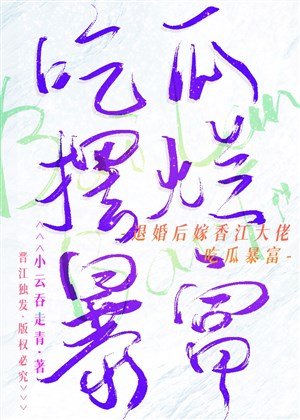 吃瓜
摆烂
暴富
-退婚后嫁香江大佬
吃瓜暴富-
<<<小云吞走青·著
晋江独发·版权必究>>>